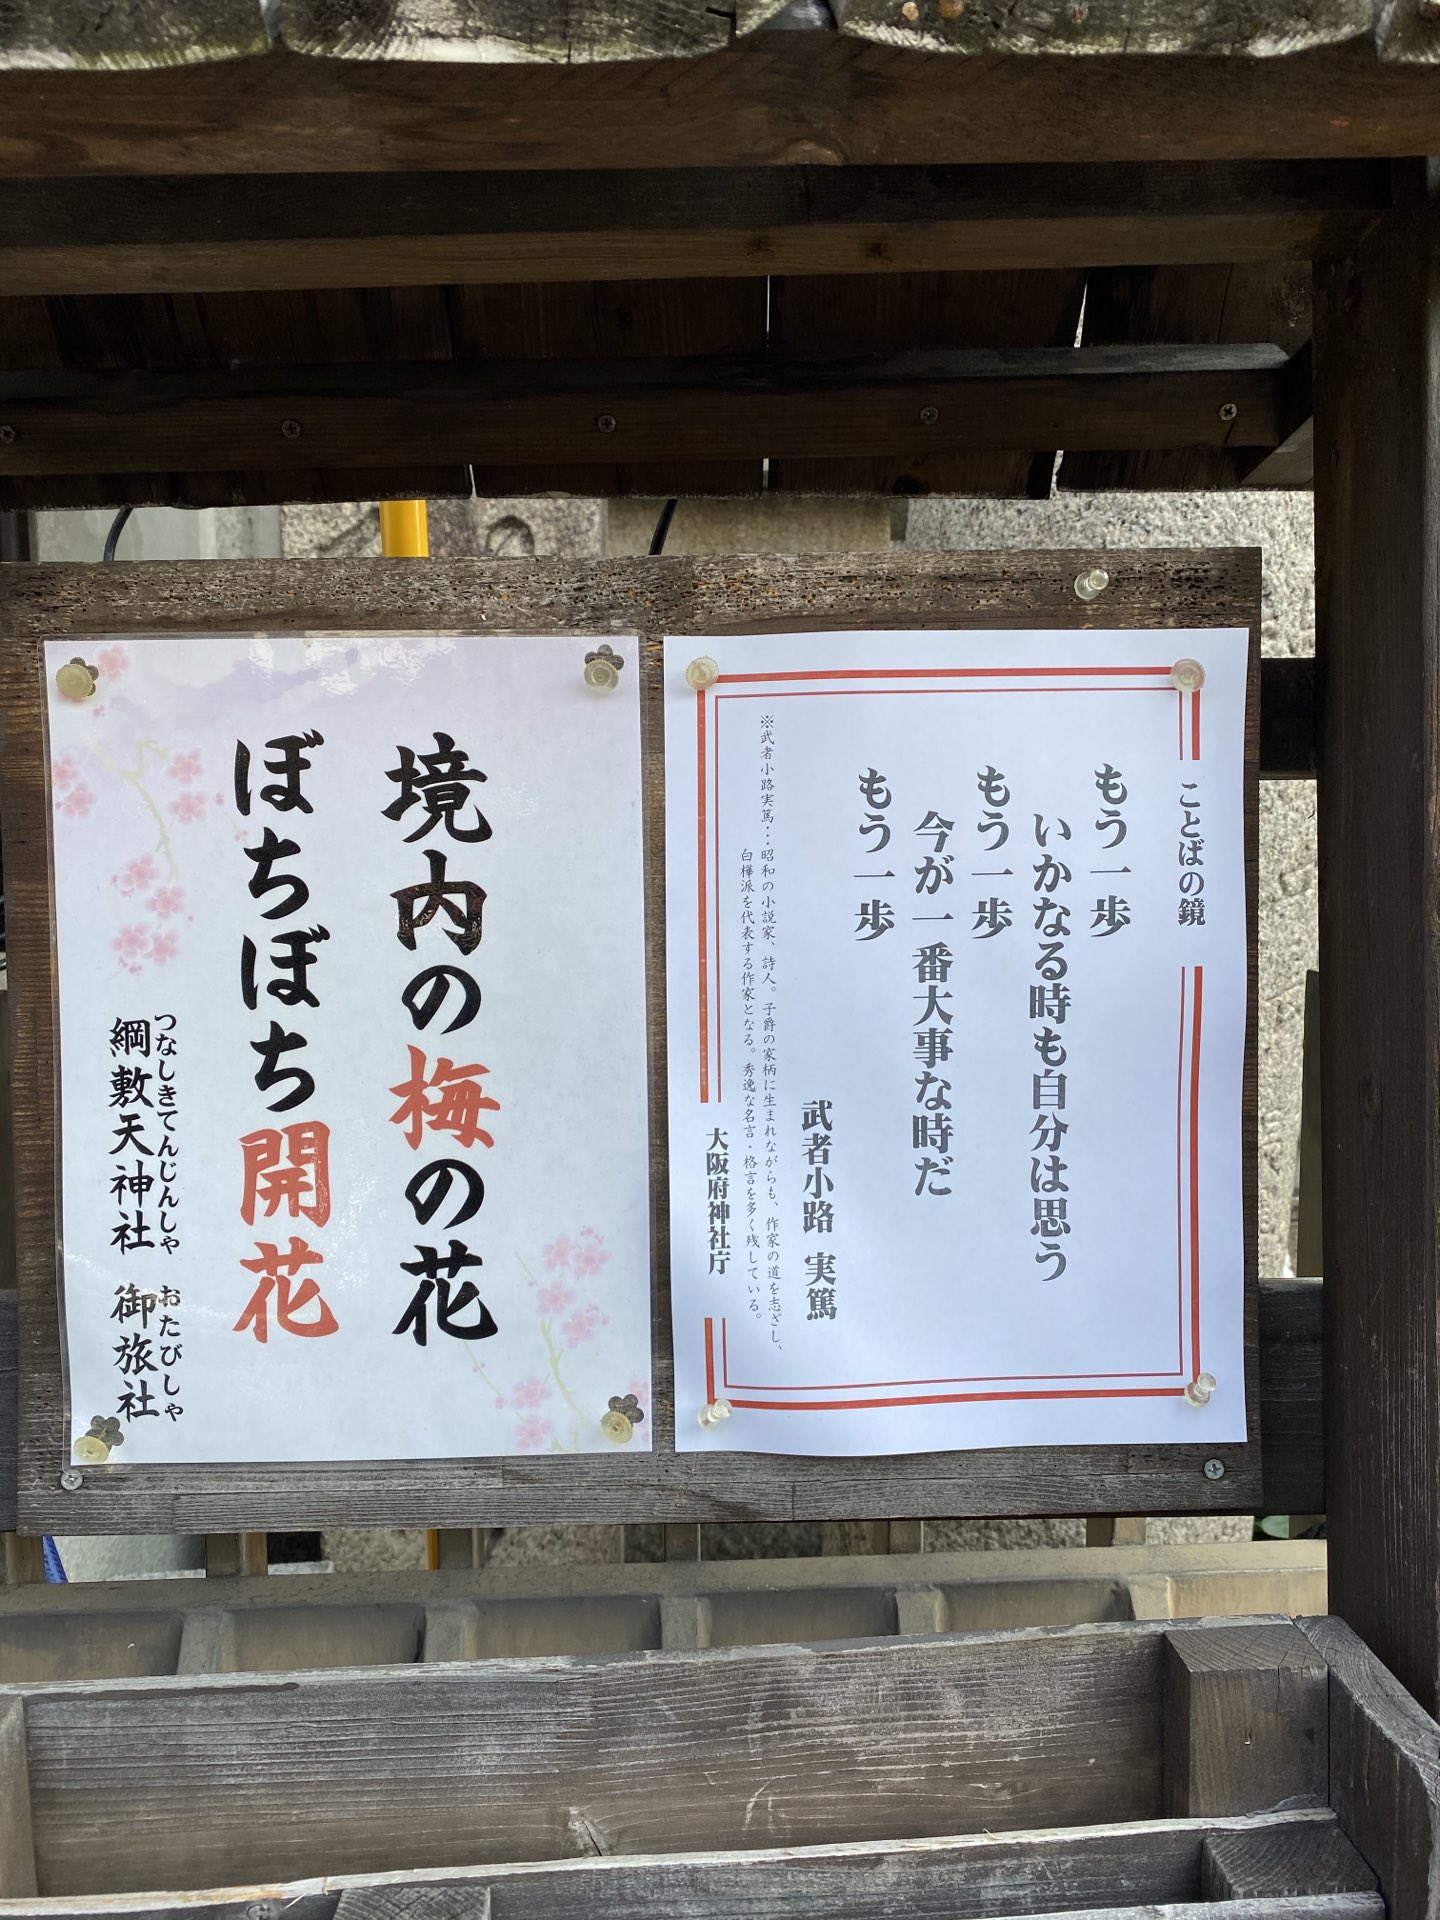 ことばの鏡
もう一歩
いかなる時も自分は思う
もう一歩
今が一番大事な時だ
もう一歩
武者小路 実篤
※武者小路実篤…昭和の小説家、詩人。子爵の家柄に生まれながらも、作家の道を志ざし、
白樺派を代表する作家となる。秀逸な名言・格言を多く残している。
大阪府神社庁
境内の梅の花
ぼちぼち開花
つなしきてんじんしゃ おたびしゃ
綱敷天神社 御旅社